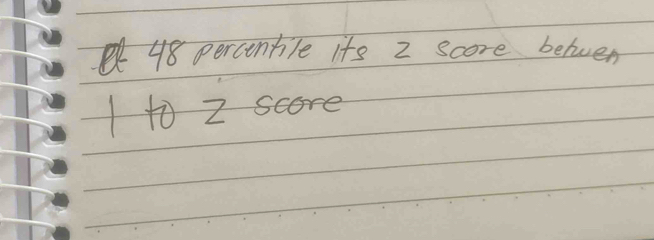 48 percentile its z score between
1 to 2 score